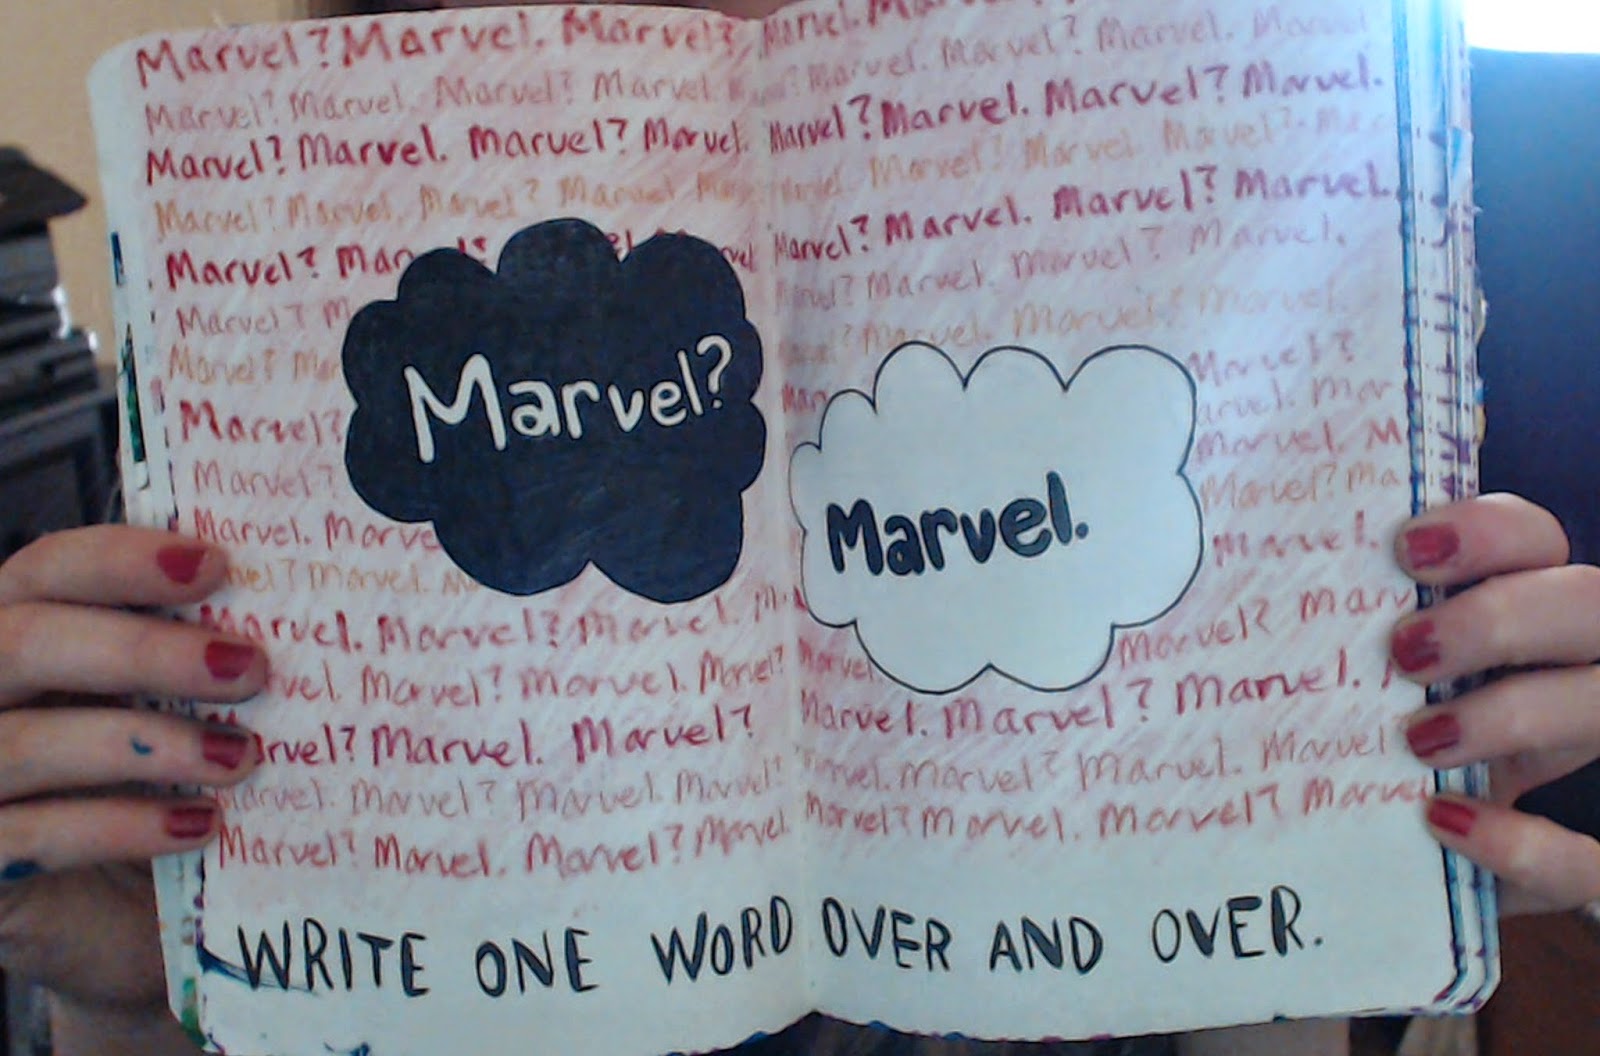 Marvel? Marvel. Marvel? Marvel.
Marvel? Marvel. Marvel? Marvel. Marvel. Marvel? Marvel. Marvel
Marvel? Marvel. Marvel? Marvel. Marvel? Marvel. Marvel? Marvel.
Marvel? Marvel. Marvel? Marvel Marvel. Marvel? Marvel. Marvel?
Marvel? Mar Marvel? Marvel. Marvel? Marvel.
Marvel? M Marvel? Marvel. Marvel? Marvel.
Marvel? Mar Marvel. Marvel? Marvel.
Marvel? Mar Marvel?
Marvel? arvel. Mar
Marvel. Marve Marvel. M
vel? Marvel. M Marvel? Ma
Marvel?
Marvel.
Marvel. Marvel? Marvel. M Marvel.
rvel. Marvel? Marvel. Marvel? Marvel Marvel? Marv
arvel? Marvel. Marvel? Marvel. Marvel? Marvel.
Marvel. Marvel? Marvel. Marvel? Marvel. Marvel? Marvel. Marvel?
Marvel? Marvel. Marvel? Marvel. Marvel? Marvel. Marvel? Marvel
WRITE ONE WORD OVER AND OVER.